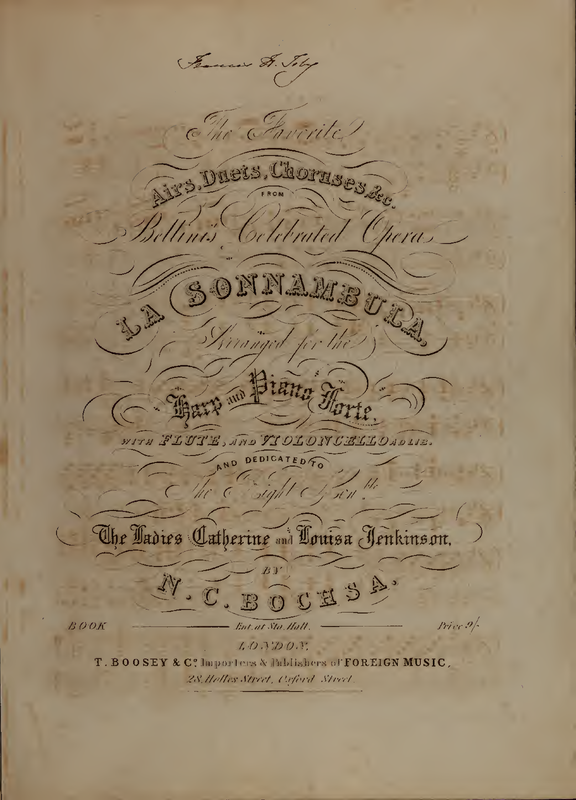 Francis H. Toby
The Favorite
Airs, Duets, Choruses, &c.
FROM
Bellini's Celebrated Opera
LA SONNAMBULA,
Arranged for the
Harp and Piano Forte,
WITH FLUTE, AND VIOLONCELLO AD LIB.
AND DEDICATED TO
The Right Honble.
The Ladies Catherine and Louisa Jenkinson,
BY
N. C. BOCHSA.
BOOK Ent. at Sta. Hall. Price 9/-
LONDON,
T. BOOSEY & Co. Importers & Publishers of FOREIGN MUSIC,
28, Holles Street, Oxford Street